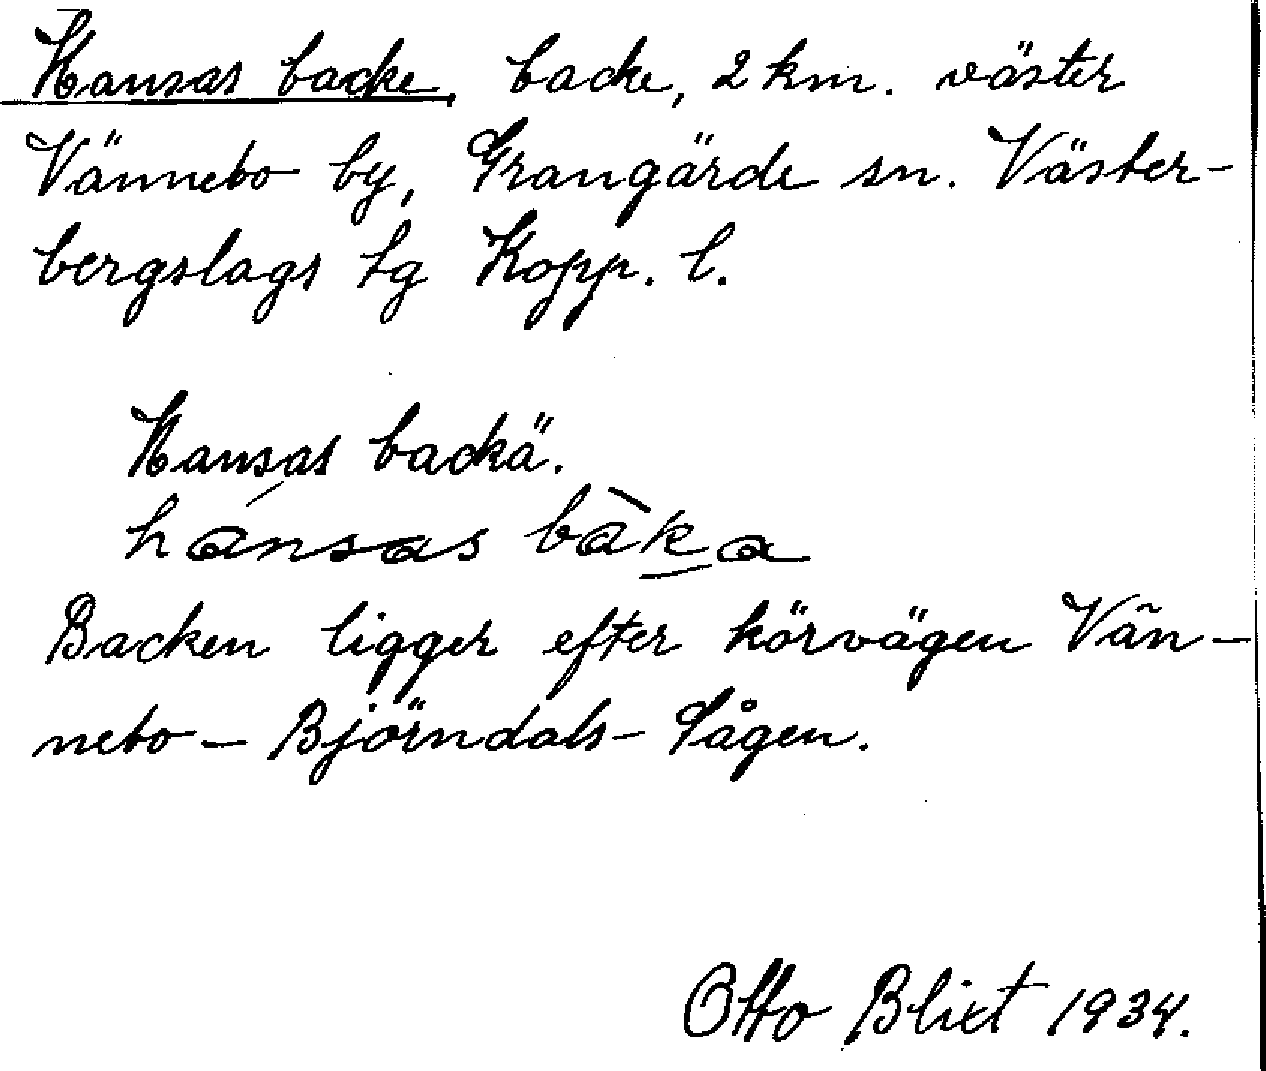 Hansas backe, backe, 2 km. väster
Vännebo by, Grangärde sn. Väster-
bergslags tg Kopp. l.
Hansas backä.
hánsas bàka
Backen ligger efter körvägen Vän-
nebo – Björndals-Sågen.
Otto Blixt 1934.